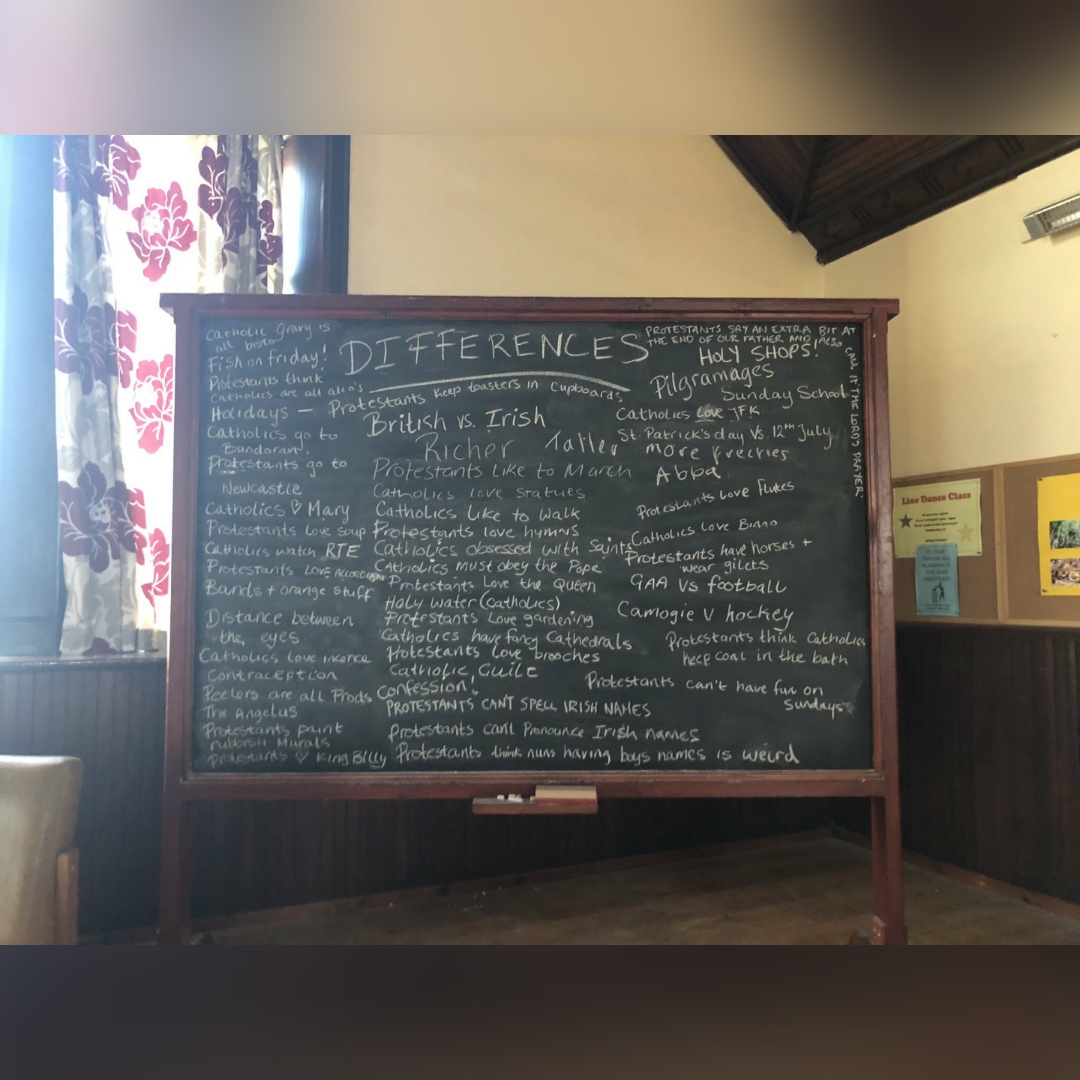 DIFFERENCES
Catholic Gravy is
all bisto
Fish on Friday!
Protestants think
Catholics are all alco's
Holidays —
Catholics go to
Bundoran.
Protestants go to
Newcastle
Catholics ♡ Mary
Protestants love soup
Catholics watch RTE
Protestants LOVE ACCORDION
Bands + orange stuff
Distance between
the eyes
Catholics love incence
Contraception
Peelers are all Prods
The Angelus
Protestants paint
rubbish Murals
protestants ♡ King Billy
Protestants keep toasters in cupboards
British vs. Irish
Richer Taller
Protestants like to March
Catholics love statues
Catholics like to walk
Protestants love hymns
Catholics obsessed with Saints
Catholics must obey the Pope
Protestants Love the Queen
Holy water (catholics)
Protestants Love gardening
Catholics have fancy Cathedrals
Protestants love brooches
Catholic Guilt
Confession!
PROTESTANTS CAN'T SPELL IRISH NAMES
Protestants can't Pronounce Irish names
Protestants think nuns having boys names is weird
PROTESTANTS SAY AN EXTRA BIT AT
THE END OF OUR FATHER AND ALSO
CALL IT THE LORD'S PRAYER.
HOLY SHOPS!
Pilgramages
Sunday School
Catholics Love JFK
St. Patrick's day Vs. 12th July
more freckles
Abba
Protestants Love flutes
Catholics Love Bingo
Protestants have horses +
wear gilets
GAA VS football
Camogie V hockey
Protestants think Catholics
keep coal in the bath
Protestants can't have fun on
Sundays
Line Dance Class